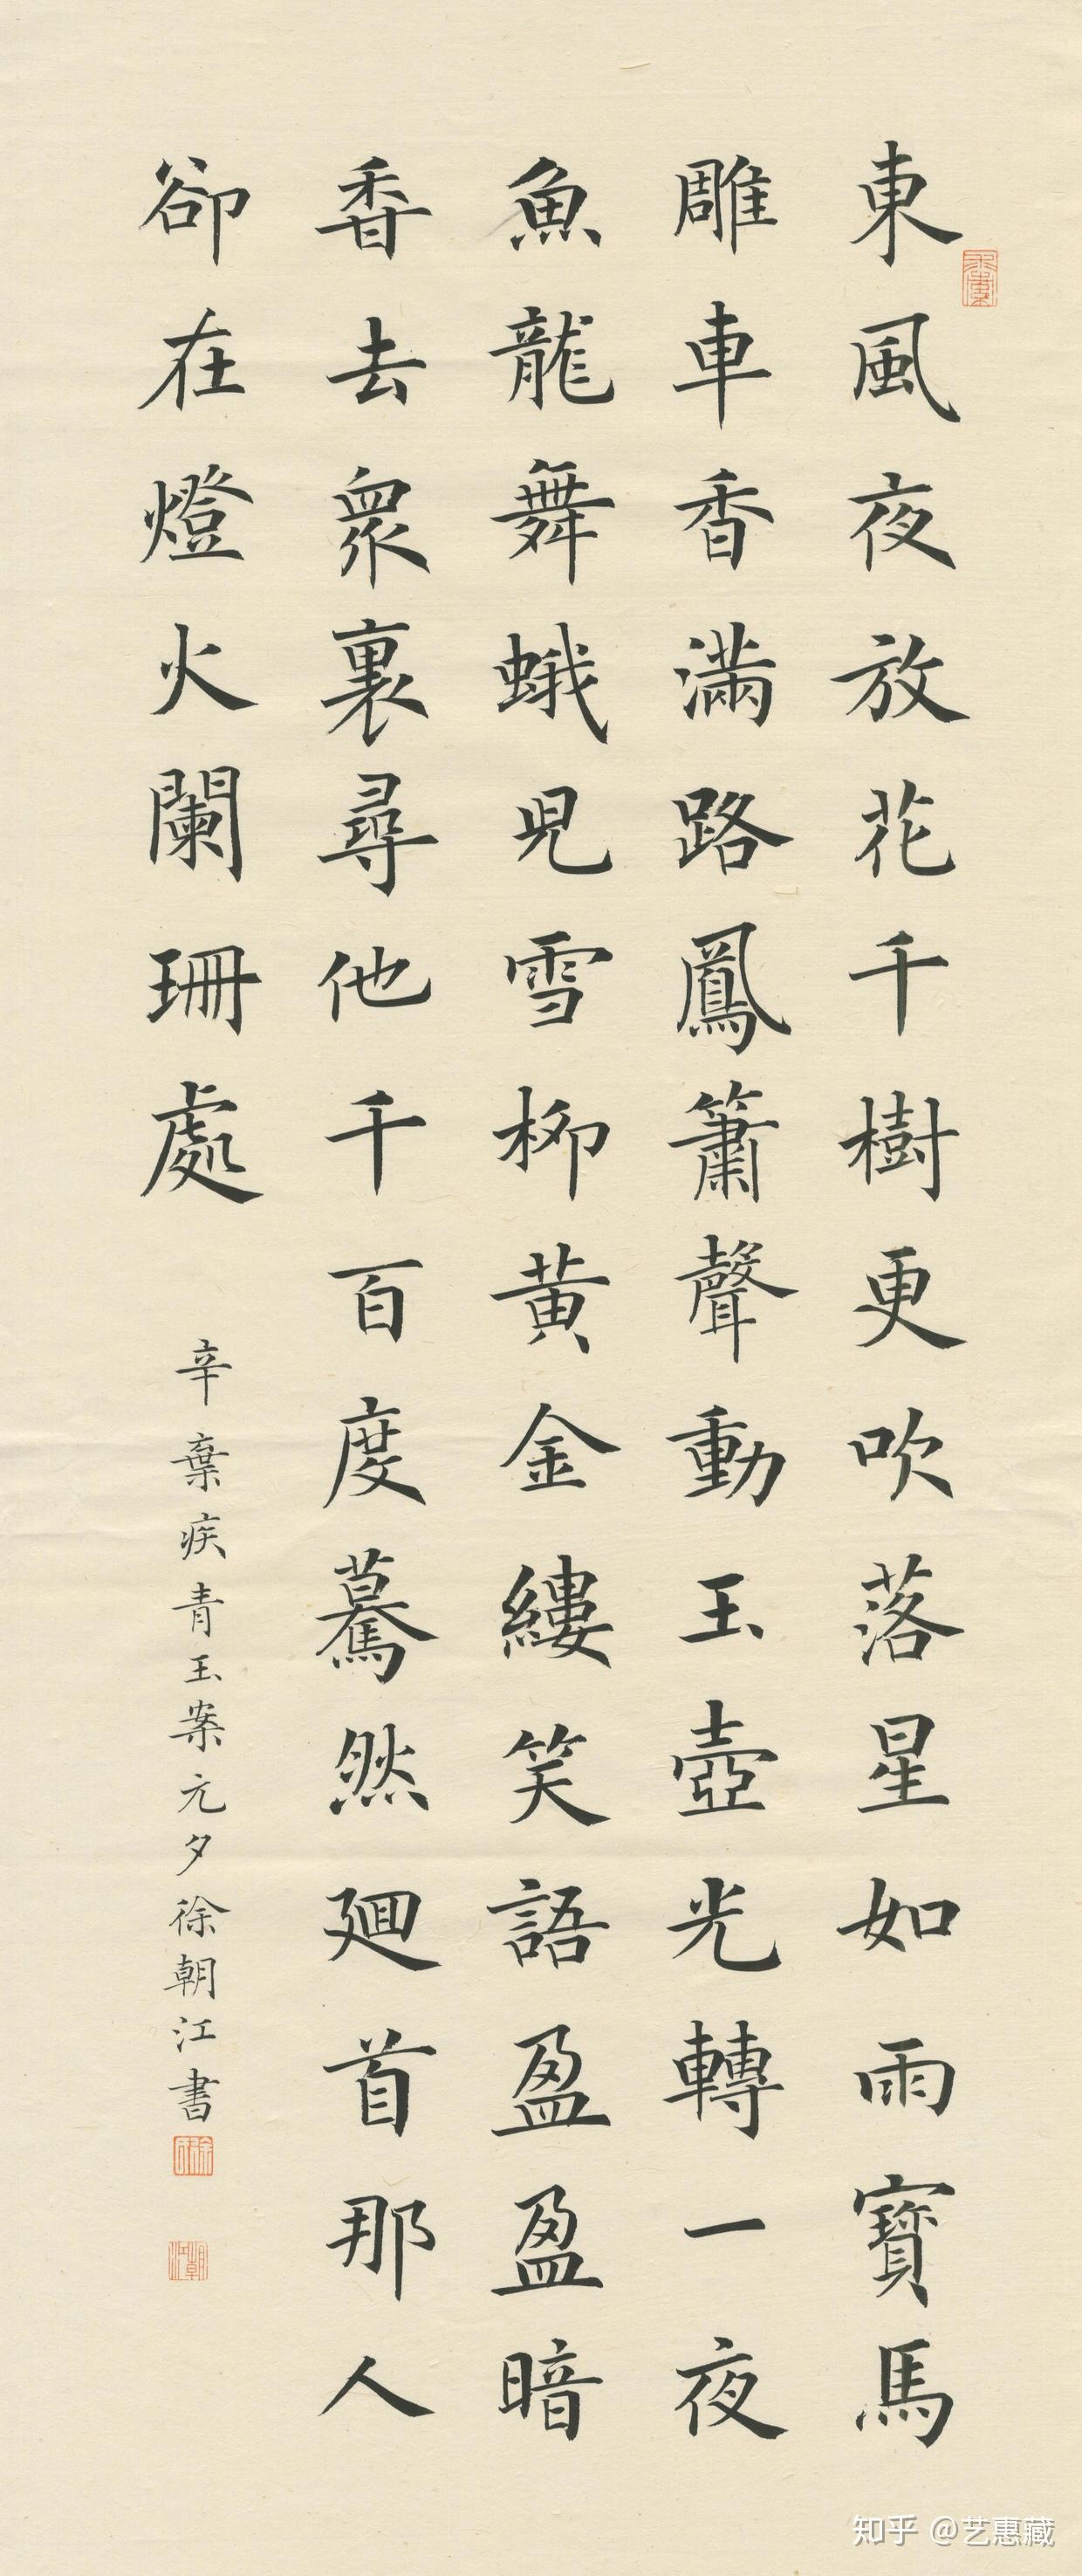 東風夜放花千樹更吹落星如雨寶馬
雕車香滿路鳳簫聲動玉壺光轉一夜
魚龍舞蛾兒雪柳黃金縷笑語盈盈暗
香去衆裏尋他千百度驀然廻首那人
卻在燈火闌珊處
辛棄疾青玉案元夕徐朝江書
知乎 @艺惠藏